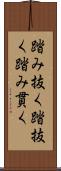 踏み抜く踏抜
く踏み貫く